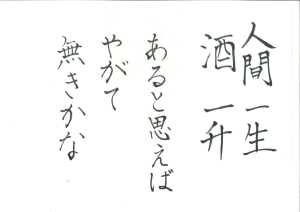 人間一生
酒一升
あると思えば
やがて
無きかな